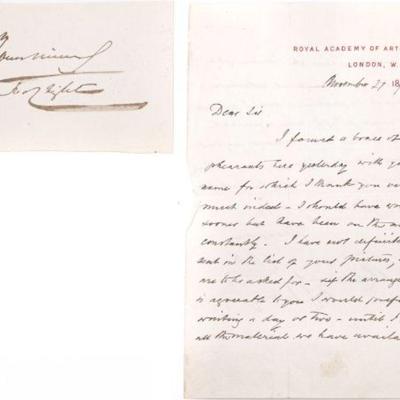 ROYAL ACADEMY OF ART
LONDON, W.
November 27 18
Dear Sir
I found a brace of
pheasants here yesterday with yo
name for which I thank you ve
much indeed - I should have w
sooner but have been on the m
constantly. I have not definite
sent in the list of your pictures,
are to be asked for - if the arrange
is agreeable to you I would prefer
waiting a day or two - until I
all the material we have availa